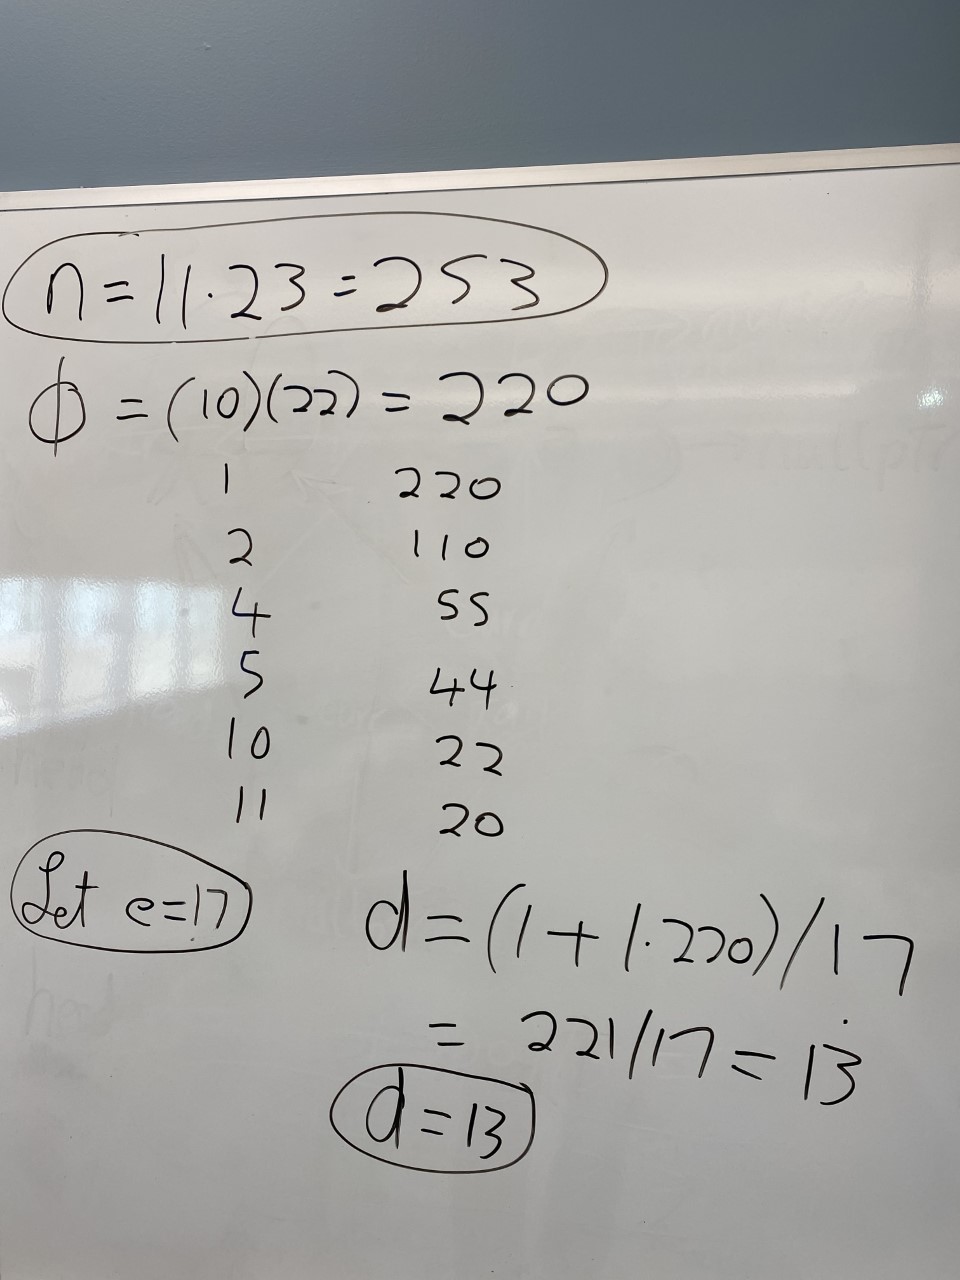 n = 11·23 = 253
ϕ = (10)(22) = 220
1 220
2 110
4 55
5 44
10 22
11 20
Let e=17
d = (1 + 1·220)/17
= 221/17 = 13
d = 13